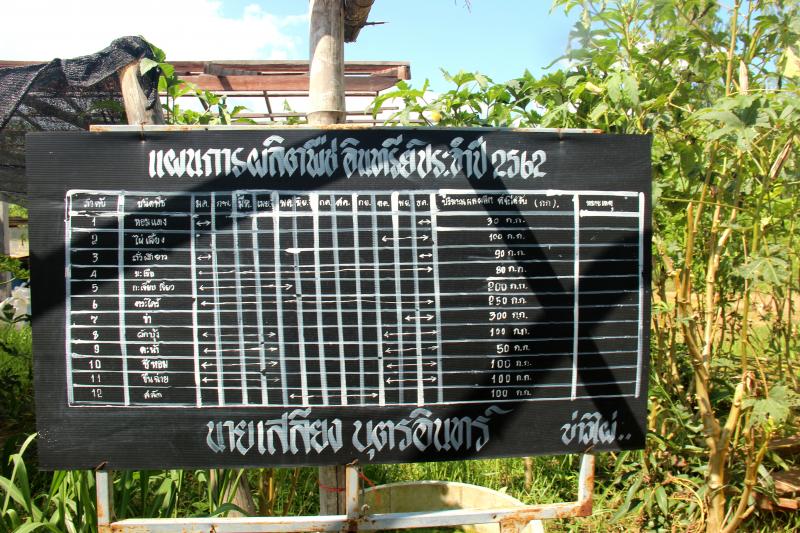 แผนการผลิตพืช อินทรีย์ประจำปี 2562
ลำดับ ชนิดพืช ม.ค. ก.พ. มี.ค. เม.ย. พ.ค. มิ.ย. ก.ค. ส.ค. ก.ย. ต.ค. พ.ย. ธ.ค. ปริมาณผลผลิต ที่จะได้รับ (กก). หมายเหตุ
1 หอมแดง 30 ก.ก.
2 ไผ่เลี้ยง 100 ก.ก.
3 ถั่วฝักยาว 90 ก.ก.
4 มะเขือ 80 ก.ก.
5 กะเจี๊ยบเขียว 200 ก.ก.
6 ตะไคร้ 250 ก.ก.
7 ข่า 300 ก.ก.
8 ผักบุ้ง 100 ก.ก.
9 คะน้า 50 ก.ก.
10 ชีหอม 100 ก.ก.
11 ขึ้นฉ่าย 100 ก.ก.
12 สลัด 100 ก.ก.
นายเสลียง บุตรอินทร์